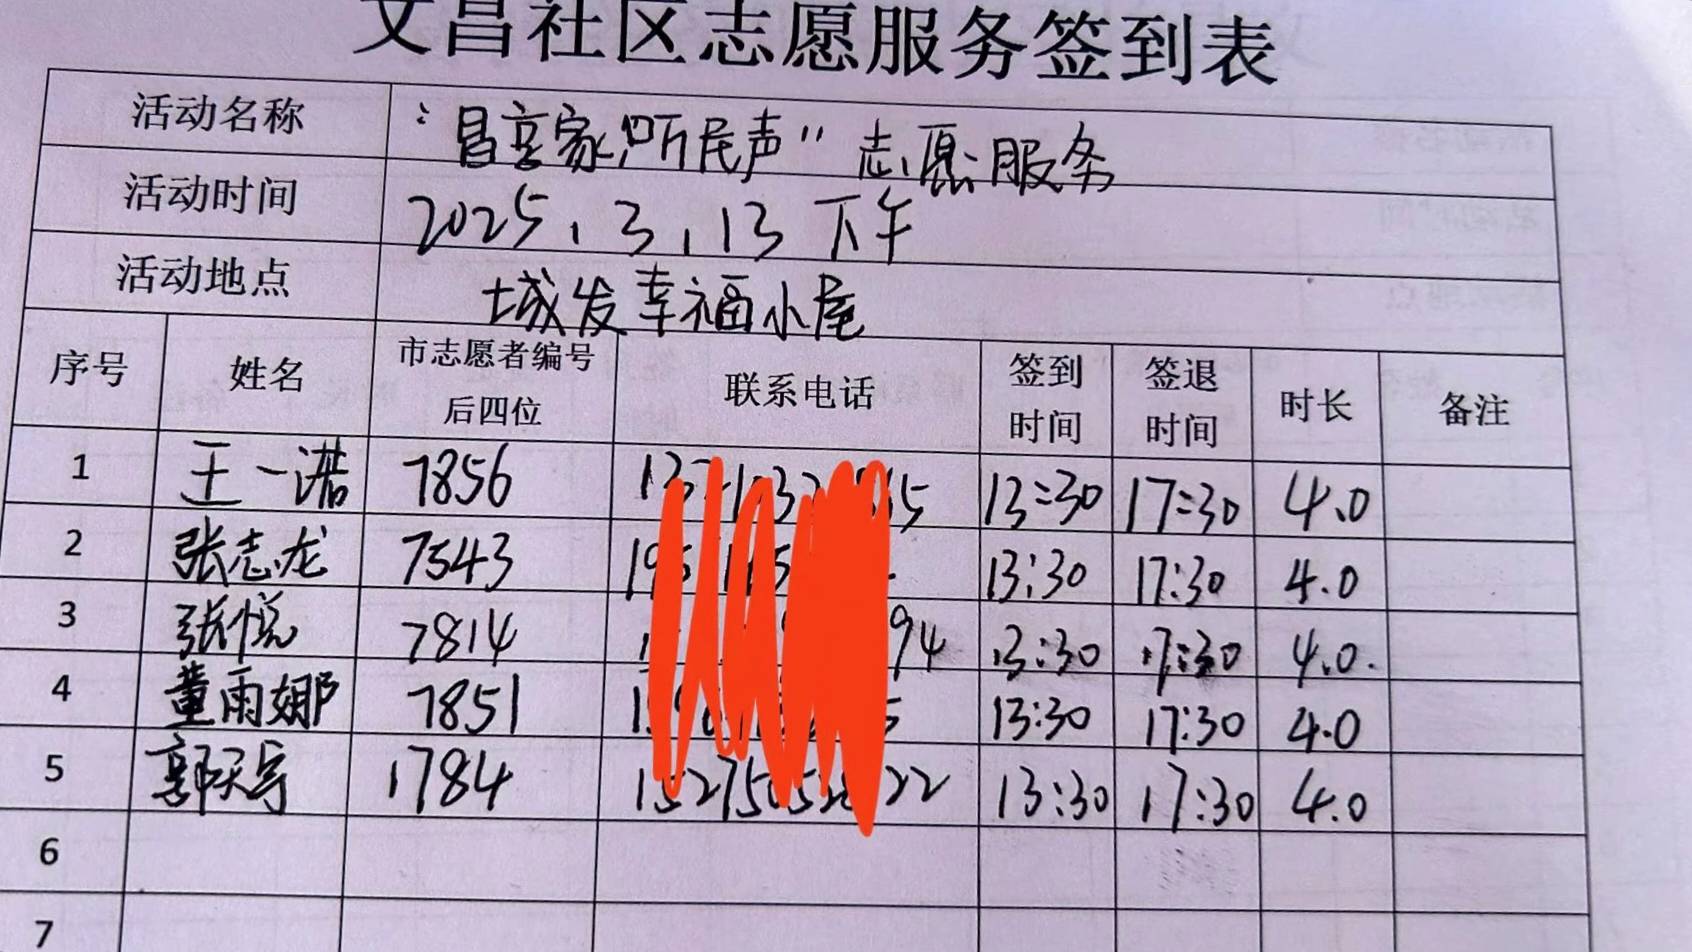 文昌社区志愿服务签到表
活动名称 “昌享家 听民声” 志愿服务
活动时间 2025.3.13 下午
活动地点 城发幸福小屋
序号 姓名 市志愿者编号后四位 联系电话 签到时间 签退时间 时长 备注
1 王一诺 7856 13:30 17:30 4.0
2 张志龙 7543 13:30 17:30 4.0
3 张悦 7814 94 13:30 17:30 4.0.
4 董雨娜 7851 13:30 17:30 4.0
5 郭天宇 1784 22 13:30 17:30 4.0
6
7